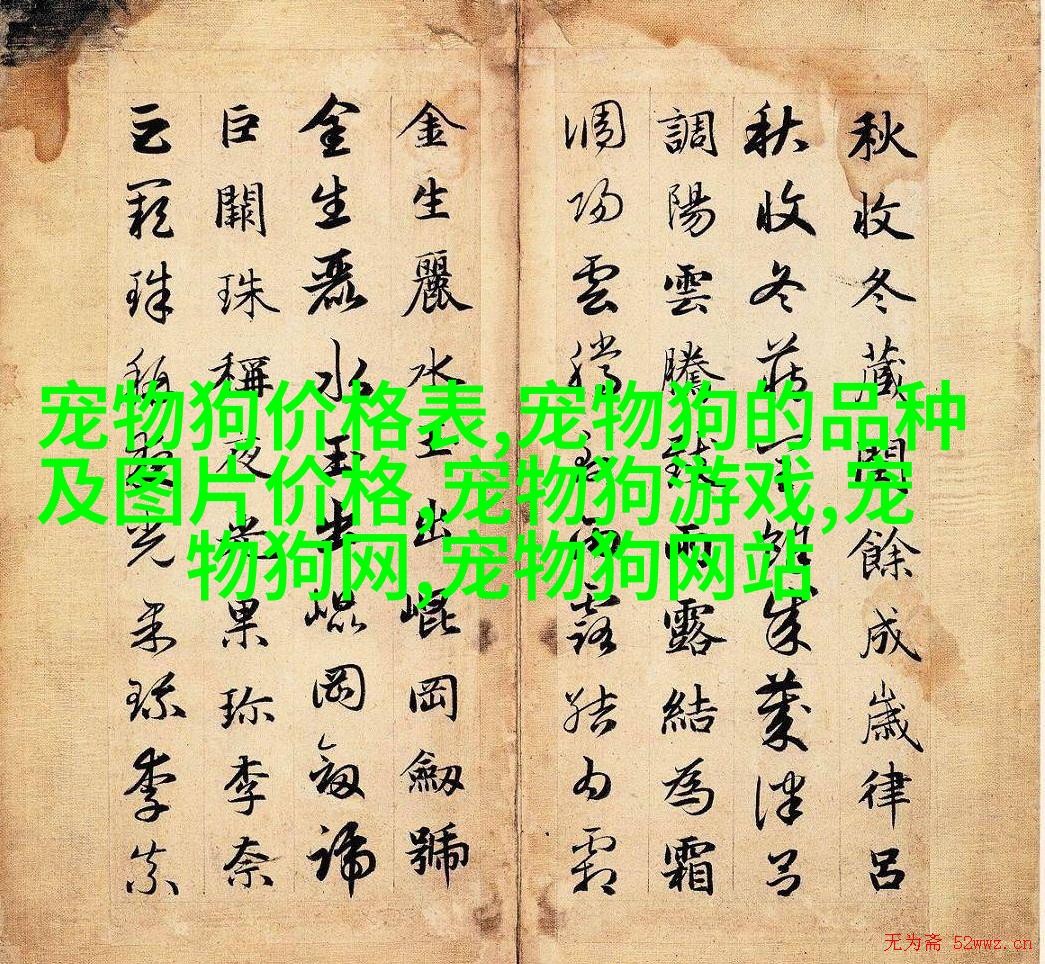 秋收冬藏閏餘成歲律呂
秋收冬藏閏餘成歲律呂
調陽雲騰致雨露結為霜
調陽雲騰致雨露結為霜
金生麗水玉出崐岡劔號
金生麗水玉出崐岡劔號
巨闕珠稱夜光果珎李柰
巨闕珠稱夜光果珎李柰
宠物狗价格表,宠物狗的品种
及图片价格,宠物狗游戏,宠
物狗网,宠物狗网站
无为斋 52wwz.cn